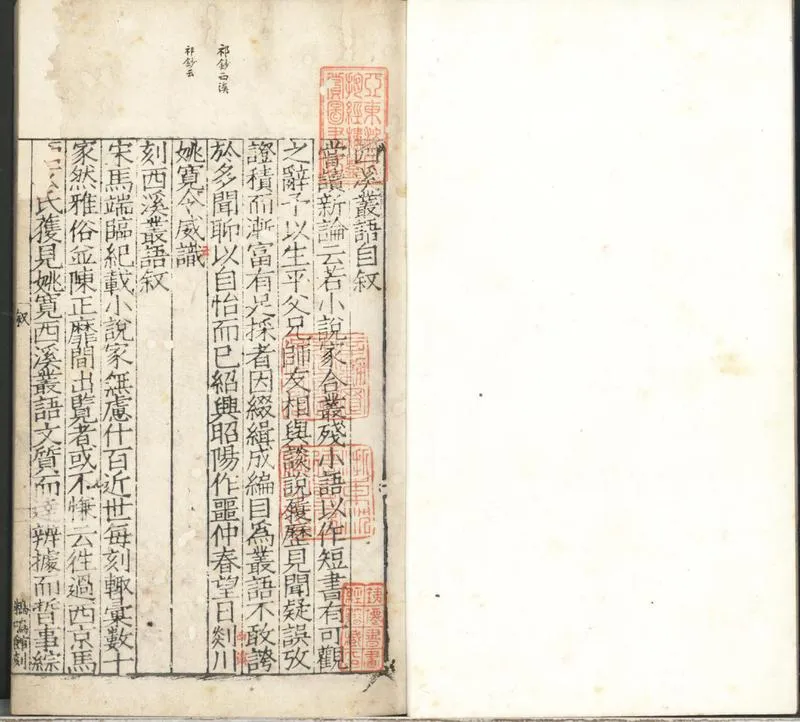 西溪叢語自叙
嘗讀新論云若小說家合叢殘小語以作短書有可觀
之辭予以生平父兄師友相與談說履歷見聞疑誤攷
證積而漸富有足採者因綴緝成編目爲叢語不敢誇
於多聞聊以自怡而已紹興昭陽作噩仲春望日剡川
姚寬令威識
刻西溪叢語叙
宋馬端臨紀載小說家無慮什百近世每刻輙彙數十
家然雅俗並陳正靡間出覧者或不慊云徃過西京馬
氏獲見姚寬西溪叢語文質而達辨據而晢事綜
叙
鶴鳴館刻
祁鈔西溪
祁鈔云